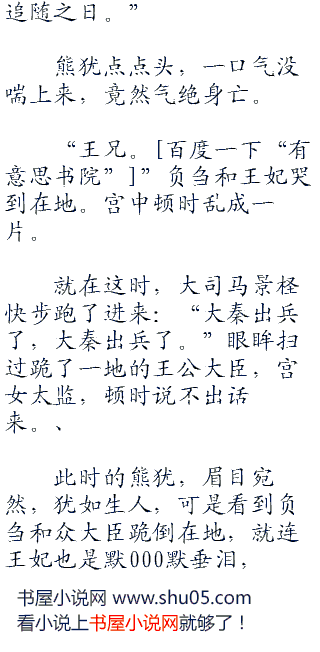 追随之日。”
熊犹点点头，一口气没
喘上来，竟然气绝身亡。
“王兄。[百度一下“有
意思书院”]”负刍和王妃哭
到在地。宫中顿时乱成一
片。
就在这时，大司马景柽
快步跑了进来：“大秦出兵
了，大秦出兵了。”眼眸扫
过跪了一地的王公大臣，宫
女太监，顿时说不出话
来。、
此时的熊犹，眉目宛
然，犹如生人，可是看到负
刍和众大臣跪倒在地，就连
王妃也是默000默垂泪，
书屋小说网 www.shu05.com
看小说上书屋小说网就够了！